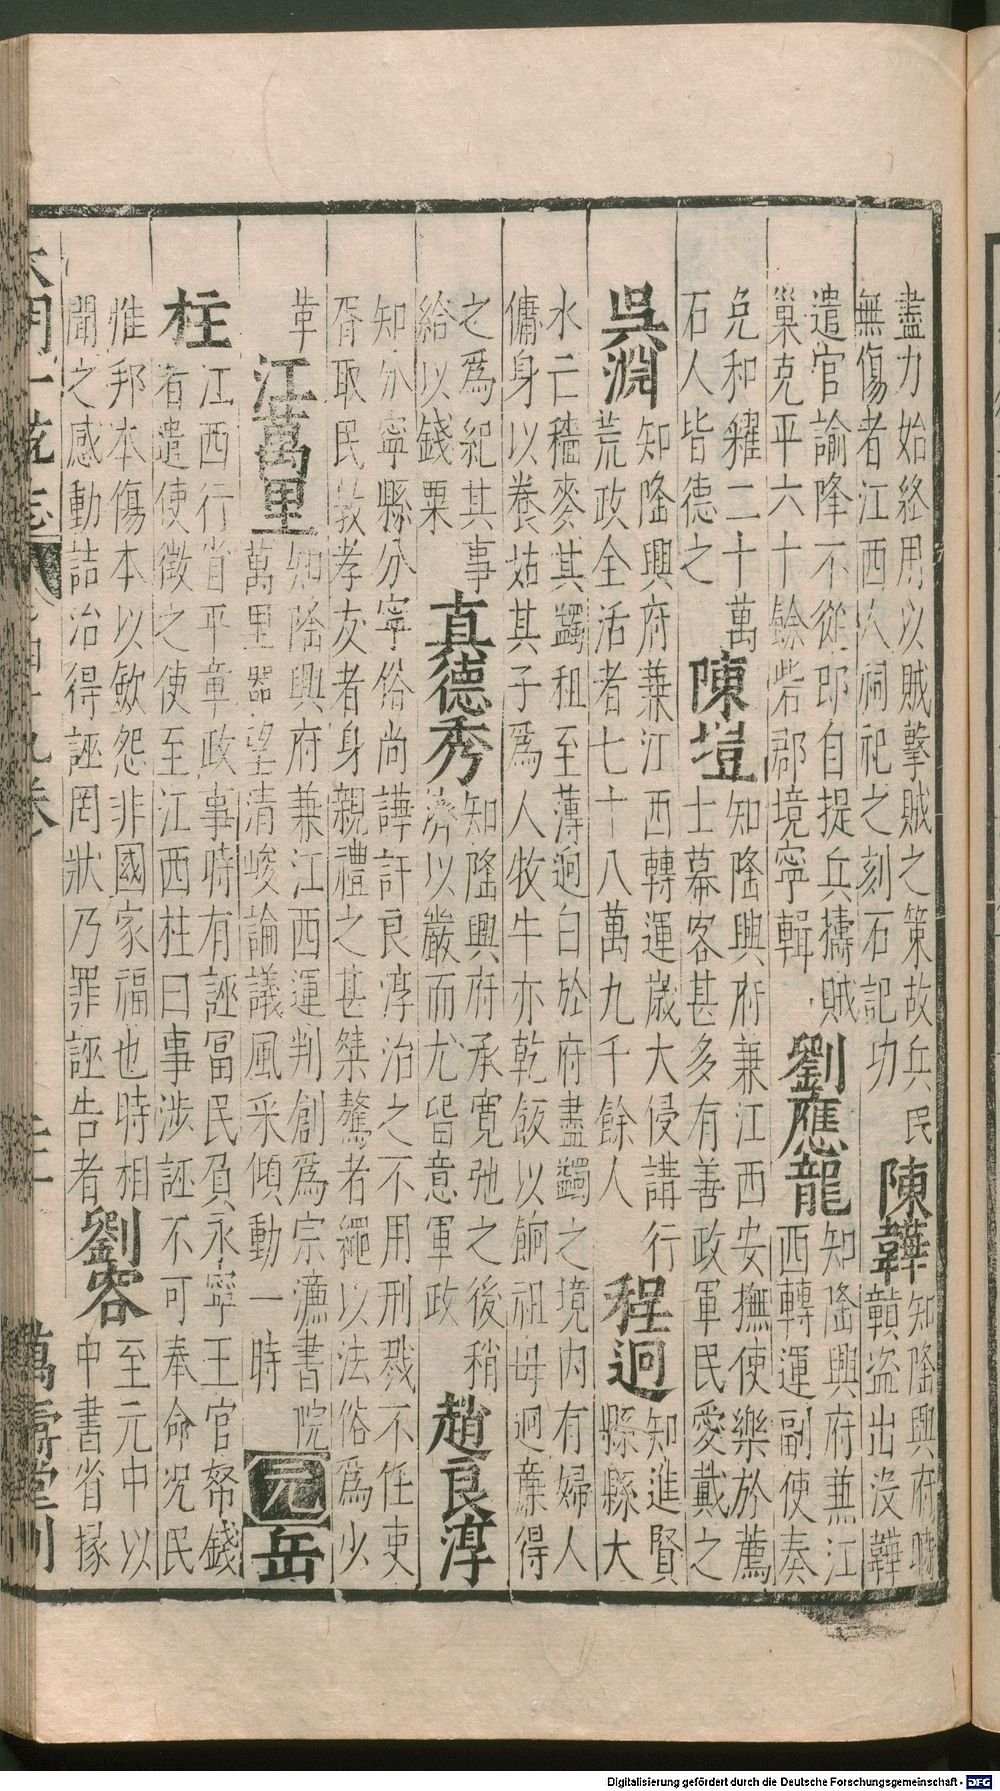 盡力始終用以賊擊賊之策故兵民
無傷者江西人祠祀之刻石記功
陳韡
知隆興府時
贛盜出沒韡
遣官諭降不從即自提兵擣賊
巢克平六十餘砦郡境寧輯
劉應龍
知隆興府兼江
西轉運副使奏
免和糴二十萬
石人皆德之
陳塏
知隆興府兼江西安撫使樂於薦
士幕客甚多有善政軍民愛戴之
吳淵
知隆興府兼江西轉運歲大侵講行
荒政全活者七十八萬九千餘人
程迥
知進賢
縣縣大
水亡穡麥其蠲租至薄迥白於府盡蠲之境内有婦人
傭身以養姑其子爲人牧牛亦乾飯以餉祖母迥廉得
之爲紀其事
給以錢粟
真德秀
知隆興府承寬弛之後稍
濟以嚴而尤留意軍政
趙良淳
知分寧縣分寧俗尚譁訐良淳治之不用刑戮不任吏
胥取民敦孝友者身親禮之甚桀驁者繩以法俗爲少
革
江萬里
知隆興府兼江西運判創爲宗濂書院
萬里器望清峻論議風采傾動一時
元
岳
柱
江西行省平章政事時有誣冨民負永寧王官帑錢
者遣使徵之使至江西柱曰事涉誣不可奉命况民
惟邦本傷本以斂怨非國家福也時相
聞之感動詰治得誣罔狀乃罪誣告者
劉容
至元中以
中書省掾
大明一統志 四十九卷 萬壽堂刊
Digitalisierung gefördert durch die Deutsche Forschungsgemeinschaft - DFG